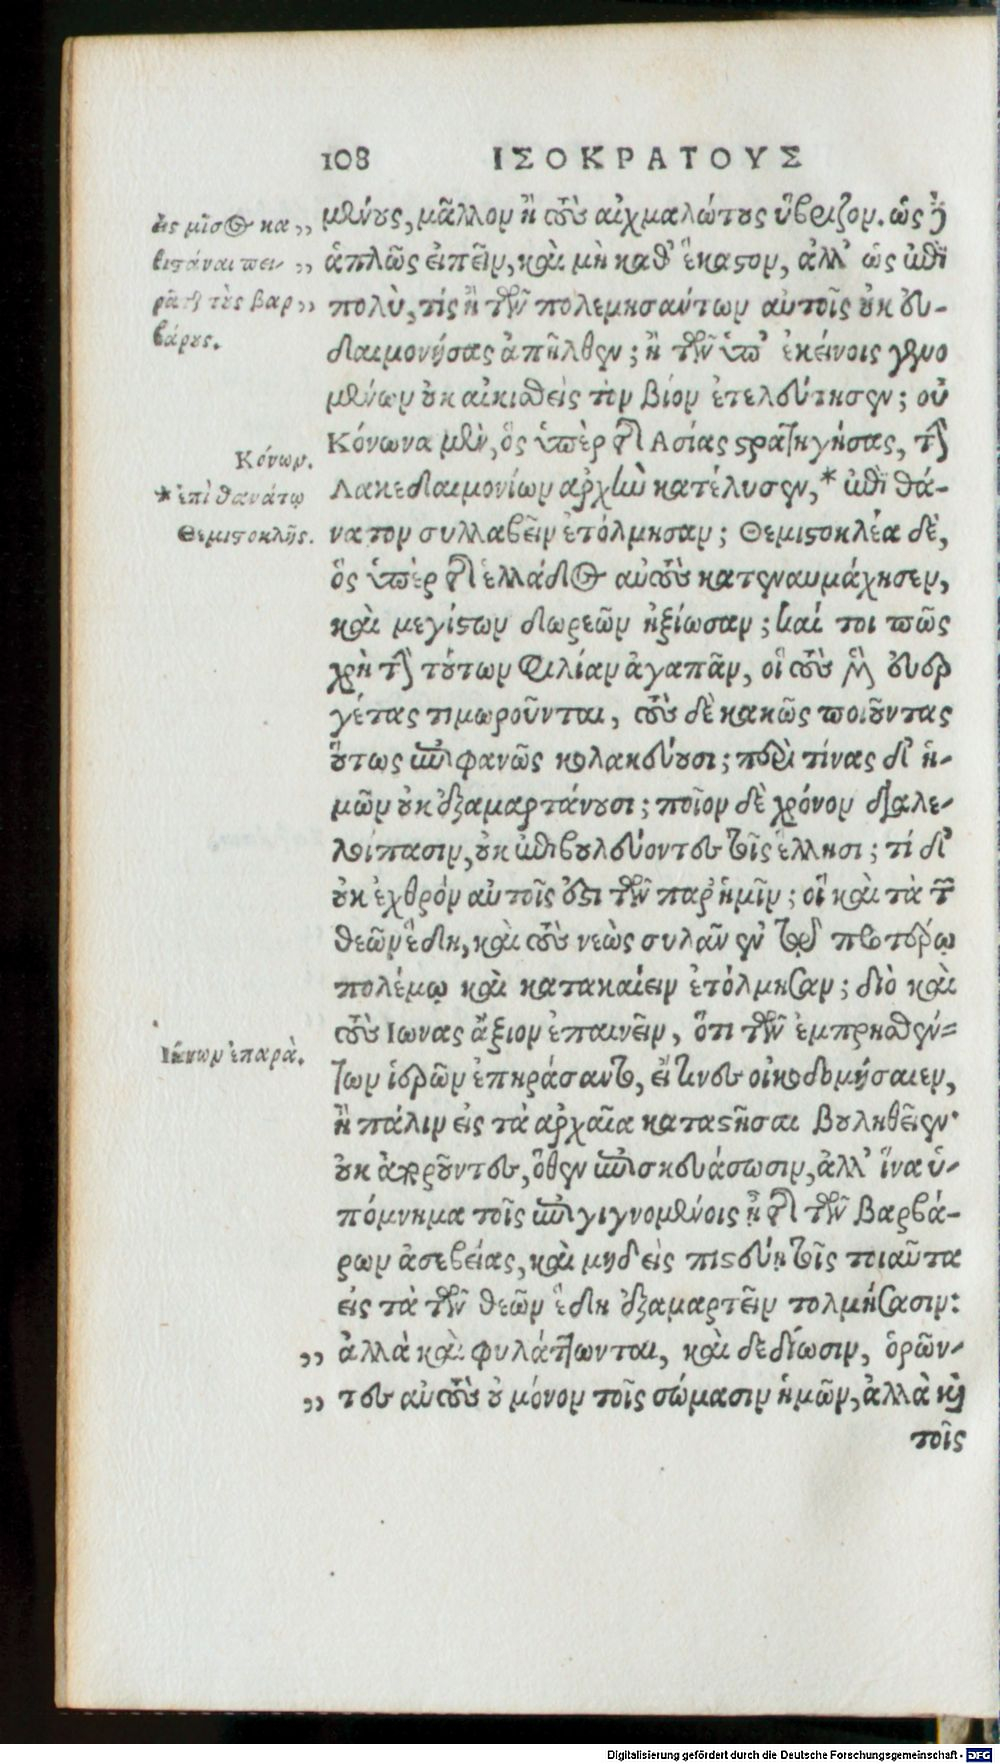 108 ΙΣΟΚΡΑΤΟΥΣ
εἰς μῖσος κα„
θιστάναι πει-„
ρᾶται τοὺς βαρ„
βάρους.
μένους, μᾶλλον ἢ τοὺς αἰχμαλώτους ὕβριζον. ὡς δ'
ἁπλῶς εἰπεῖν, καὶ μὴ καθ' ἕκαστον, ἀλλ' ὡς ἐπὶ
πολὺ, τίς ἢ τῶν πολεμησάντων αὐτοῖς οὐκ εὐ-
δαιμονήσας ἀπῆλθεν; ἢ τῶν ὑπ' ἐκείνοις γενο
μένων οὐκ αἰκισθεὶς τὸν βίον ἐτελεύτησεν; οὐ
Κόνων.
Κόνωνα μὲν, ὃς ὑπὲρ τῆς Ασίας στρατηγήσας, τὴν
*ἐπὶ θανάτῳ
Λακεδαιμονίων ἀρχὴν κατέλυσεν,* ἐπὶ θά-
Θεμιστοκλῆς.
νατον συλλαβεῖν ἐτόλμησαν; Θεμιστοκλέα δὲ,
ὃς ὑπὲρ τῆς ἑλλάδος αὐτοὺς κατεναυμάχησεν,
καὶ μεγίστων δωρεῶν ἠξίωσαν; καί τοι πῶς
χρὴ τὴν τούτων φιλίαν ἀγαπᾶν, οἳ τοὺς μὲν εὐερ
γέτας τιμωροῦνται, τοὺς δὲ κακῶς ποιοῦντας
οὕτως ἐπιφανῶς κολακεύουσι; περὶ τίνας δ' ἡ-
μῶν οὐκ ἐξαμαρτάνουσι; ποῖον δὲ χρόνον διαλε-
λοίπασιν, οὐκ ἐπιβουλεύοντες τοῖς ἕλλησι; τί δ'
οὐκ ἐχθρόν αὐτοῖς ἐστι τῶν παρ' ἡμῖν; οἳ καὶ τὰ τῶν
θεῶν ἕδη, καὶ τοὺς νεὼς συλᾶν ἐν τῷ προτέρῳ
πολέμῳ καὶ κατακαίειν ἐτόλμησαν; διὸ καὶ
Ιώνων ἐπαρὰ.
τοὺς Ιωνας ἄξιον ἐπαινεῖν, ὅτι τῶν ἐμπρησθέν=
των ἱερῶν ἐπηράσαντο, εἴ τινες οἰκοδομήσαιεν,
ἢ πάλιν εἰς τὰ ἀρχαῖα καταστῆσαι βουληθεῖεν·
οὐκ ἀποροῦντες, ὅθεν ἐπισκευάσωσιν, ἀλλ' ἵνα ὑ-
πόμνημα τοῖς ἐπιγιγνομένοις ᾖ τῆς τῶν βαρβά-
ρων ἀσεβείας, καὶ μηδεὶς πιστεύῃ τοῖς τοιαῦτα
εἰς τὰ τῶν θεῶν ἕδη ἐξαμαρτεῖν τολμήσασιν:
„ ἀλλὰ καὶ φυλάττωνται, καὶ δεδίωσιν, ὁρῶν-
„ τες αὐτοὺς οὐ μόνον τοῖς σώμασιν ἡμῶν, ἀλλὰ καὶ
τοῖς
Digitalisierung gefördert durch die Deutsche Forschungsgemeinschaft - DFG